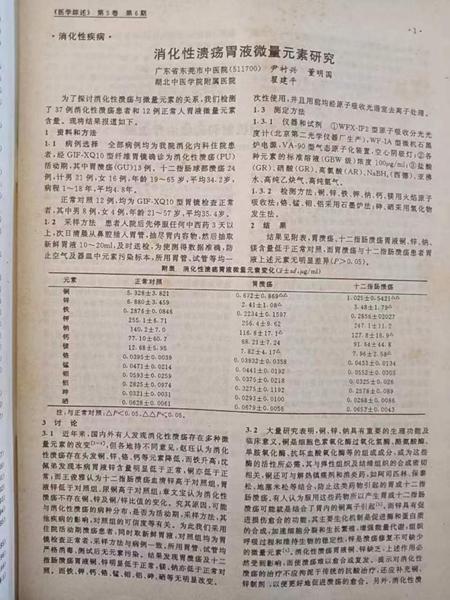 《医学综述》 第5卷 第6期
· 1 ·
· 消化性疾病 ·
消化性溃疡胃液微量元素研究
广东省东莞市中医院(511700) 尹村兴 董明国
湖北中医学院附属医院 瞿建平
为了探讨消化性溃疡与微量元素的关系,我们检测
了37例消化性溃疡患者和12例正常人胃液微量元素
含量。现将结果报道如下。
1 资料和方法
1.1 病例选择 全部病例均为我院消化内科住院患
者,经GIF-XQ10型纤维胃镜确诊为消化性溃疡(PU)
活动期,其中胃溃疡(GU)13例,十二指肠球部溃疡24
例,计男21例,女16例,年龄19~65岁,平均34.2岁,
病程1~18年,平均4.8年。
正常对照12例,均为GIF-XQ10型胃镜检查正常
者,其中男8例,女4例,年龄21~57岁,平均35.4岁。
1.2 采样方法 患者入院后先停服任何中西药3天以
上,次日清晨从鼻腔插入胃管,抽尽胃内容物,然后抽取
新鲜胃液10~20ml,及时送检。为使测得数据准确,防
止空气及器皿中元素污染标本,所用胃管、试管等均一
次性使用,并且用前均经原子吸收光谱室去离子处理。
1.3 测定方法
1.3.1 仪器和试剂 ①WFX-IF2型原子吸收分光光
度计(北京第二光学仪器厂生产),WF-IA型微机石墨
炉电源,VA-90型气态原子化装置,空心阴极灯;②各
种元素的标准溶液(GBW级)浓度100μg/ml;③盐酸
(GR),硝酸(GR),高氯酸(AR),NaBH₄(西德),亚沸
水,高纯乙炔气,高纯氩气。
1.3.2 检测方法:铜、锌、铁、钾、钠、钙、镁用火焰原子
吸收法;铬、锰、钼、铝采用石墨炉法;砷、硒采用氢化物
发生法。
2 结果
结果见附表,胃溃疡、十二指肠溃疡胃液铜、锌、钠、
镁含量低于正常对照,而胃溃疡与十二指肠溃疡患者胃
液上述元素无明显差异(P>0.05)。
附表 消化性溃疡胃液微量元素变化(x̄±sd,μg/ml)
元素 正常对照 胃溃疡 十二指肠溃疡
铜 5.328±3.821 0.672±0.869△△ 1.025±0.5421△△
锌 6.880±3.459 2.41±1.08△ 3.48±1.79△
铁 0.2876±0.0846 0.2234±0.1597 0.2856±0.02027
钾 255.1±6.71 256.4±9.62 247.1±11.2
钠 140.2±7.0 116.8±17.1△ 127.8±18.9△
钙 77.10±60.7 88.21±7.24 91.64±44.8
镁 12.68±5.95 7.82±4.17△ 7.96±2.58△
铬 0.0395±0.0039 0.03932±0.0358 0.0453±0.0134
锰 0.0471±0.0214 0.0441±0.0192 0.0552±0.0305
硒 0.0593±0.0259 0.0375±0.0218 0.0325±0.026
铝 0.2825±0.0974 0.0275±0.0192 0.2578±0.089
砷 0.0321±0.0031 0.0301±0.0100 0.0328±0.009
钼 0.0628±0.0061 0.0679±0.0056 0.0657±0.0043
注:与正常对照,△P<0.05,△△P<0.05。
3 讨 论
3.1 近年来,国内外有人发现消化性溃疡存在多种微
量元素的改变,但各地持不同意见,赵珏认为消化
性溃疡存在头发铜、锌、铬、钙等元素降低,而铁升高;沈
佩弟发现本病胃液锌含量明显低于正常,铜亦低于正
常;而王俊雅认为十二指肠溃疡血清锌高于对照组,胃
液锌低于对照组,尿铜高于对照组;章文宝认为消化性
溃疡不存在铜、锌及铜/锌比值的变化。究其原因,可能
与消化性溃疡的病种分布,是否为活动期,采样方法,其
他疾病的影响,对照组的可信度等有关。为此我们采用
住院活动期溃疡患者,同时取新鲜胃液,对照组均为胃
镜检查正常者,采样方法与病例一致,所用胃管、试管均
严格消毒,测试后无元素污染。结果发现胃溃疡及十二
指肠溃疡胃液铜、锌明显低于正常,镁、钠亦低于正常对
照。而铁、钾、钙、铬、锰、钼、铝、砷、硒等无明显改变。
3.2 大量研究表明,铜、锌、钠具有重要的生理功能及
临床意义,铜是细胞色素氧化酶过氧化氢酶、酪氨酸酶、
单胺氧化酶、抗坏血酸氧化酶等的组成成分,或为这些
酶的活性所必需,其与弹性组织及结缔组织的合成密切
相关,铜还可与解热镇痛剂和类药,如阿司匹林、保泰
松、地塞米松等结合,防止这类药物引起的胃或十二指
肠溃疡,有人认为服用这些药物所以产生胃或十二指肠
溃疡可能就是结合了胃内的铜离子引起。而锌具有促
进损伤愈合的功能,其主要生化机制是促进酶和蛋白质
的合成,加速细胞分裂和生长繁殖,增强能量代谢,组织
呼吸过程和维持生物的稳定性,锌是溃疡修复不可缺少
的微量元素。消化性溃疡胃液铜、锌缺乏,上述作用必
然受到影响,而使溃疡难以愈合或复发。提示对消化性
溃疡的治疗不应拘泥于传统的抗酸治疗,还应补充铜、
锌制剂,以便更好地促进溃疡的愈合。另外,消化性溃